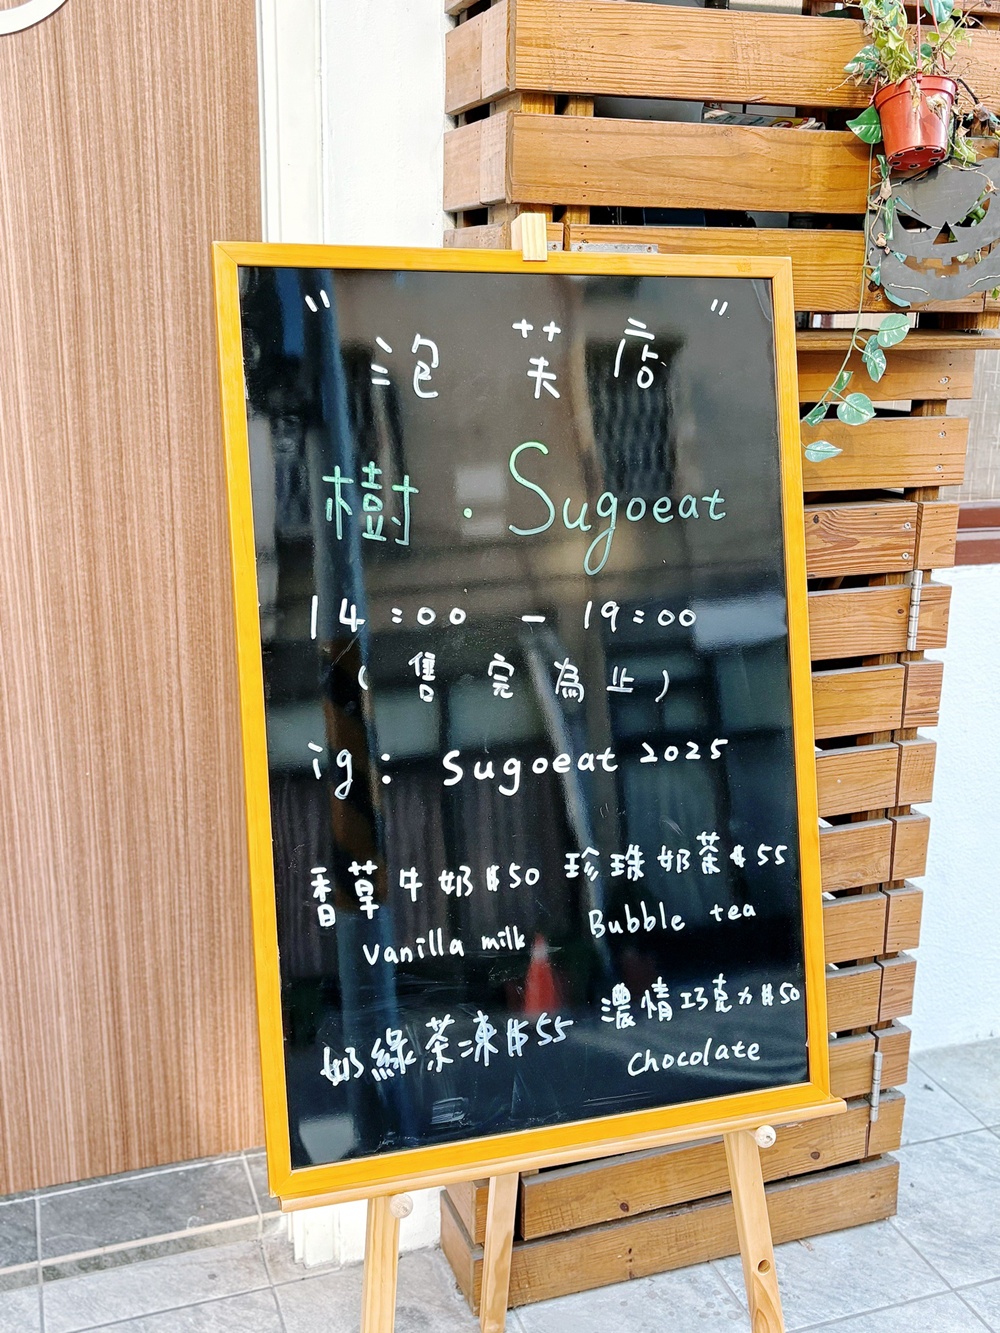 " 泡芙店 "
樹・Sugoeat
14:00 - 19:00
(售完為止)
ig: Sugoeat 2025
香草牛奶$50
Vanilla milk
珍珠奶茶$55
Bubble tea
奶綠茶凍$55
濃情巧克力$50
Chocolate